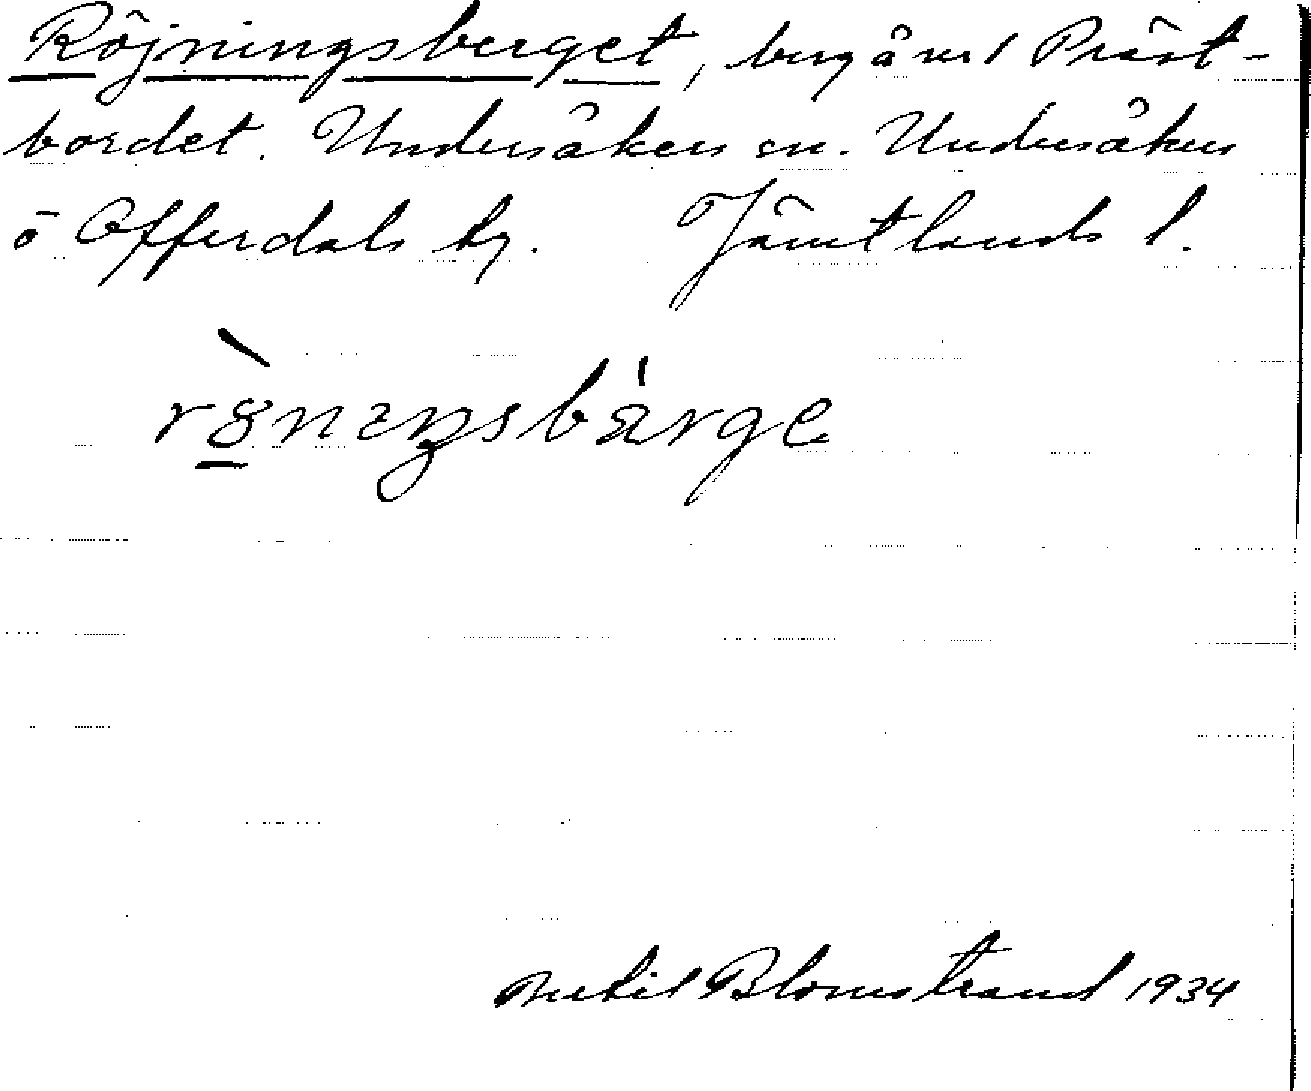 Röjningsberget, berg å nr 1 Präst-
bordet. Undersåkers sn. Undersåkers
o Offerdals tg. Jämtlands l.
rö̀nɩŋsbä́rge
Blomstrand 1934